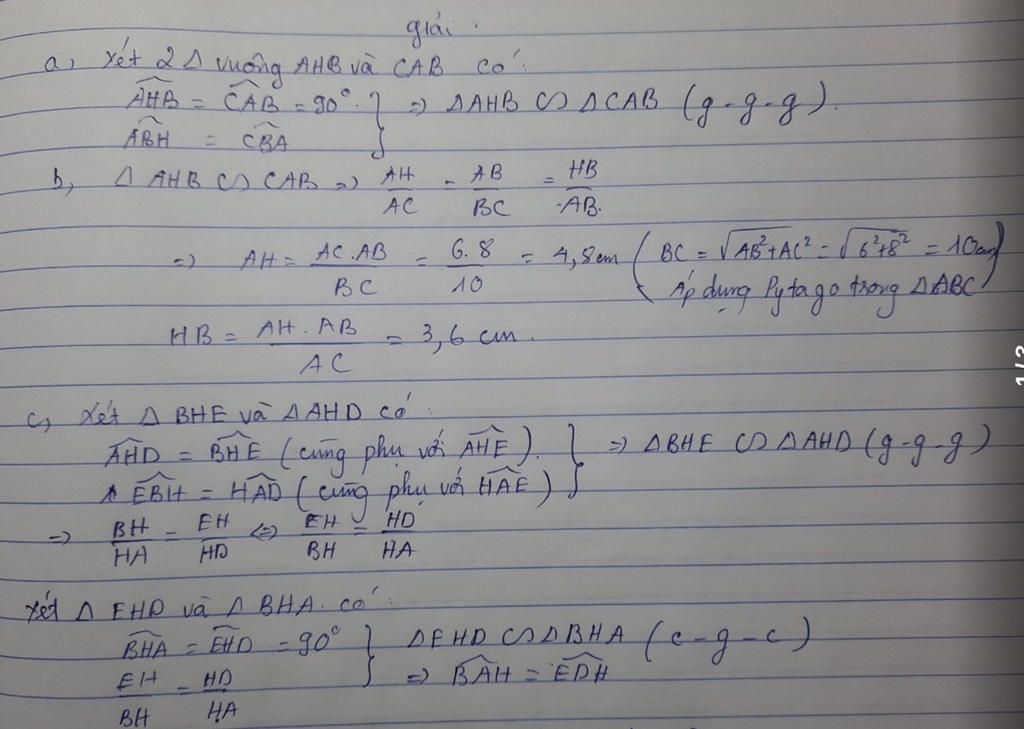 giải.
a, Xét 2 Δ vuông AHB và CAB có:
$\widehat{AHB}$ = $\widehat{CAB}$ = 90°. } ⇒ ΔAHB ∽ ΔCAB (g-g-g).
$\widehat{ABH}$ = $\widehat{CBA}$
b, Δ AHB ∽ CAB ⇒ $\frac{AH}{AC}$ = $\frac{AB}{BC}$ = $\frac{HB}{AB}$.
⇒ AH = $\frac{AC.AB}{BC}$ = $\frac{6.8}{10}$ = 4,8cm ( BC = $\sqrt{AB^2+AC^2}$ = $\sqrt{6^2+8^2}$ = 10cm
Áp dụng Pytago trong ΔABC )
HB = $\frac{AH.AB}{AC}$ = 3,6 cm.
c, Xét Δ BHE và ΔAHD có:
$\widehat{AHD}$ = $\widehat{BHE}$ (cùng phụ với $\widehat{AHE}$). } ⇒ ΔBHE ∽ ΔAHD (g-g-g)
$\widehat{EBH}$ = $\widehat{HAD}$ (cùng phụ với $\widehat{HAE}$)
⇒ $\frac{BH}{HA}$ = $\frac{EH}{HD}$ ⇔ $\frac{EH}{BH}$ = $\frac{HD}{HA}$
Xét Δ EHD và Δ BHA có:
$\widehat{BHA}$ = $\widehat{EHD}$ = 90° } ΔEHD ∽ ΔBHA (c-g-c)
$\frac{EH}{BH}$ = $\frac{HD}{HA}$ ⇒ $\widehat{BAH}$ = $\widehat{EDH}$
1/2